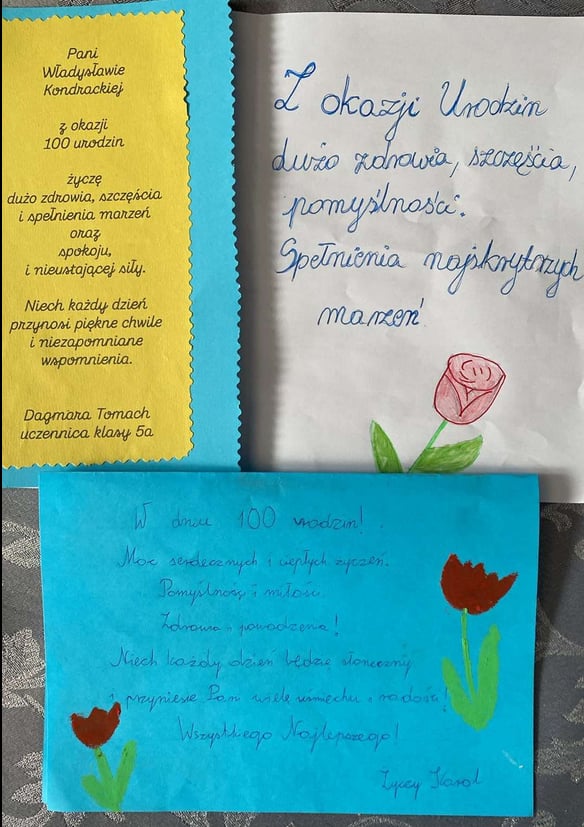 Pani
Władysławie
Kondrackiej
z okazji
100 urodzin
życzę
dużo zdrowia, szczęścia
i spełnienia marzeń
oraz
spokoju,
i nieustającej siły.
Niech każdy dzień
przynosi piękne chwile
i niezapomniane
wspomnienia.
Dagmara Tomach
uczennica klasy 5a
Z okazji Urodzin
dużo zdrowia, szczęścia,
pomyślności.
Spełnienia najskrytrzych
marzeń
W dniu 100 urodzin!
Moc serdecznych i ciepłych życzeń.
Pomyślność i miłości
Zdrowia i powodzenia!
Niech każdy dzień będzie słoneczny
i przyniesie Pani wiele uśmiechu i radości!
Wszystkiego Najlepszego!
Życzy Karol